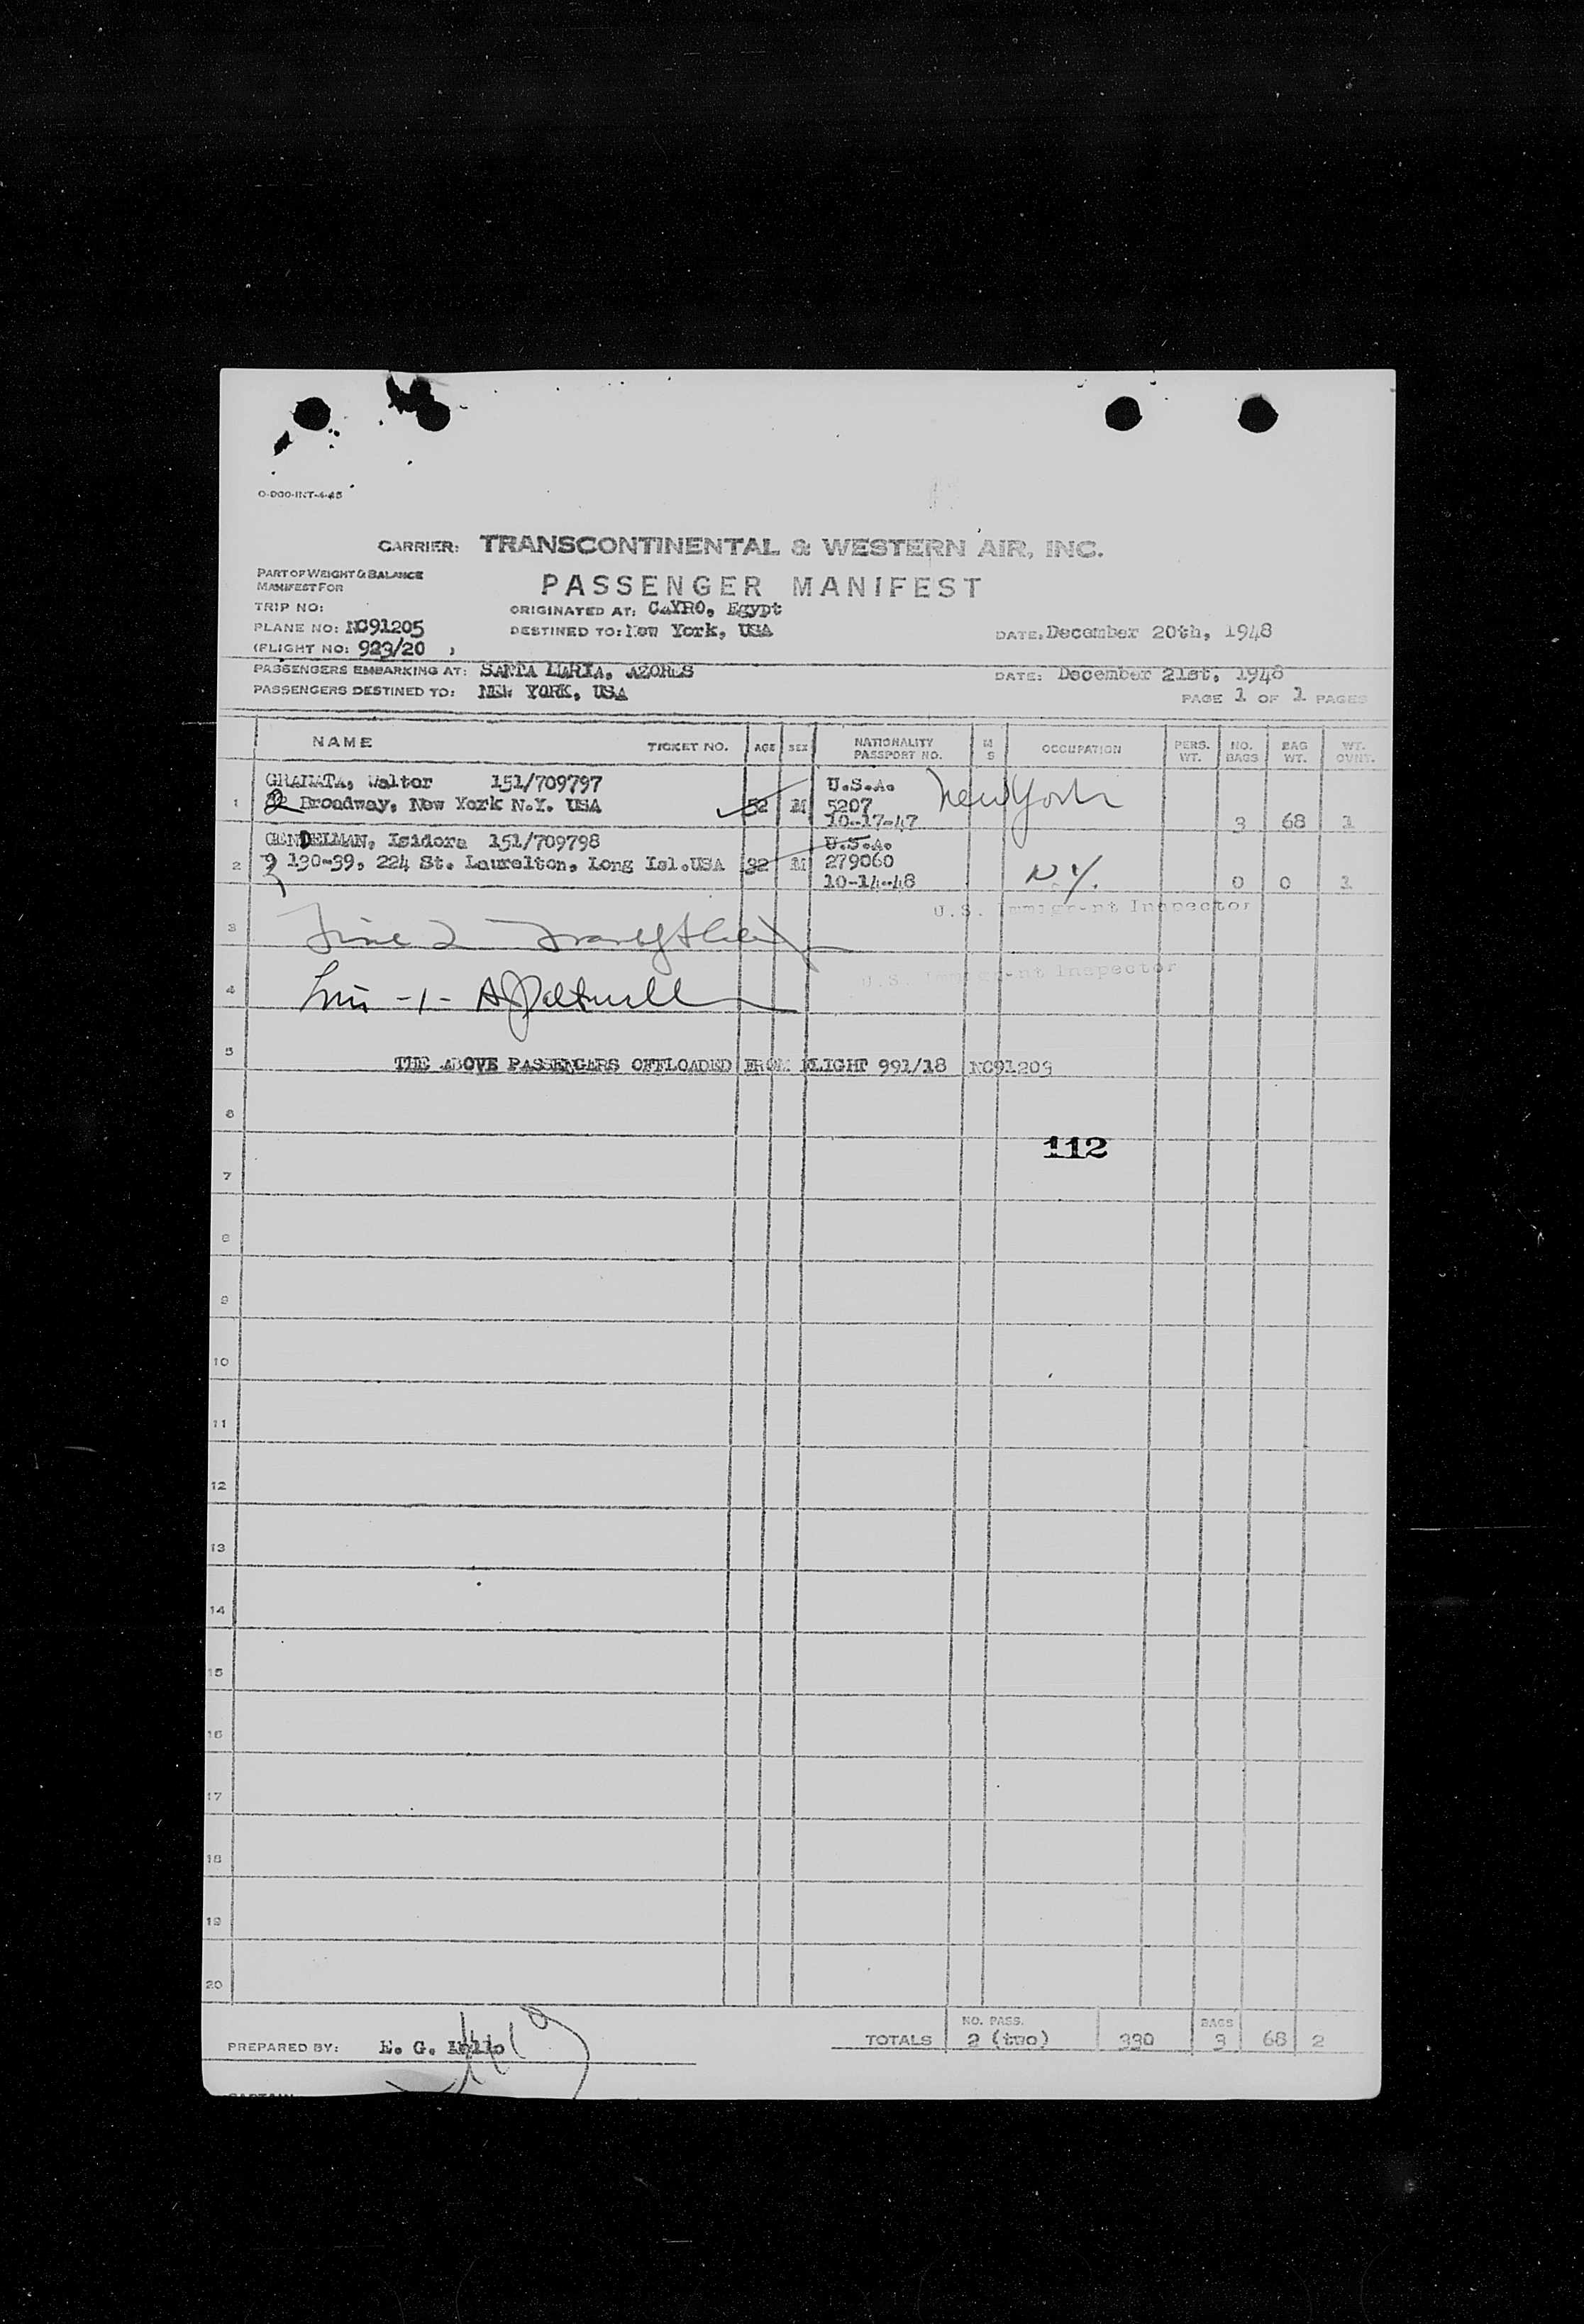 O-200-INT-4-45
CARRIER: TRANSCONTINENTAL & WESTERN AIR, INC.
PART OF WEIGHT & BALANCE
MANIFEST FOR
PASSENGER MANIFEST
TRIP NO:
ORIGINATED AT: CAYRO, Egypt
PLANE NO: NC91205
DESTINED TO: New York, USA
DATE: December 20th, 1948
(FLIGHT NO: 923/20 )
PASSENGERS EMBARKING AT: SANTA MARIA, AZORES
DATE: December 21st, 1948
PASSENGERS DESTINED TO: NEW YORK, USA
PAGE 1 OF 1 PAGES
NAME TICKET NO. AGE SEX NATIONALITY PASSPORT NO. M S OCCUPATION PERS. WT. NO. BAGS BAG WT. WT. OVNT.
GRANATA, Walter 151/709797 U.S.A. New York
1 Broadway, New York N.Y. USA 52 M 5207
10-17-47 3 68 1
GENDELMAN, Isidore 151/709798 U.S.A.
2 130-39, 224 St. Laurelton, Long Isl.USA 32 M 279060 N.Y.
10-14-48 0 0 1
U.S. Immigrant Inspector
3
U.S. Immigrant Inspector
4
5
THE ABOVE PASSENGERS OFFLOADED FROM FLIGHT 991/18 NC91203
6
112
7
8
9
10
11
12
13
14
15
16
17
18
19
20
PREPARED BY: E. G.
TOTALS NO. PASS. 2 (two) 330 BAGS 3 68 2